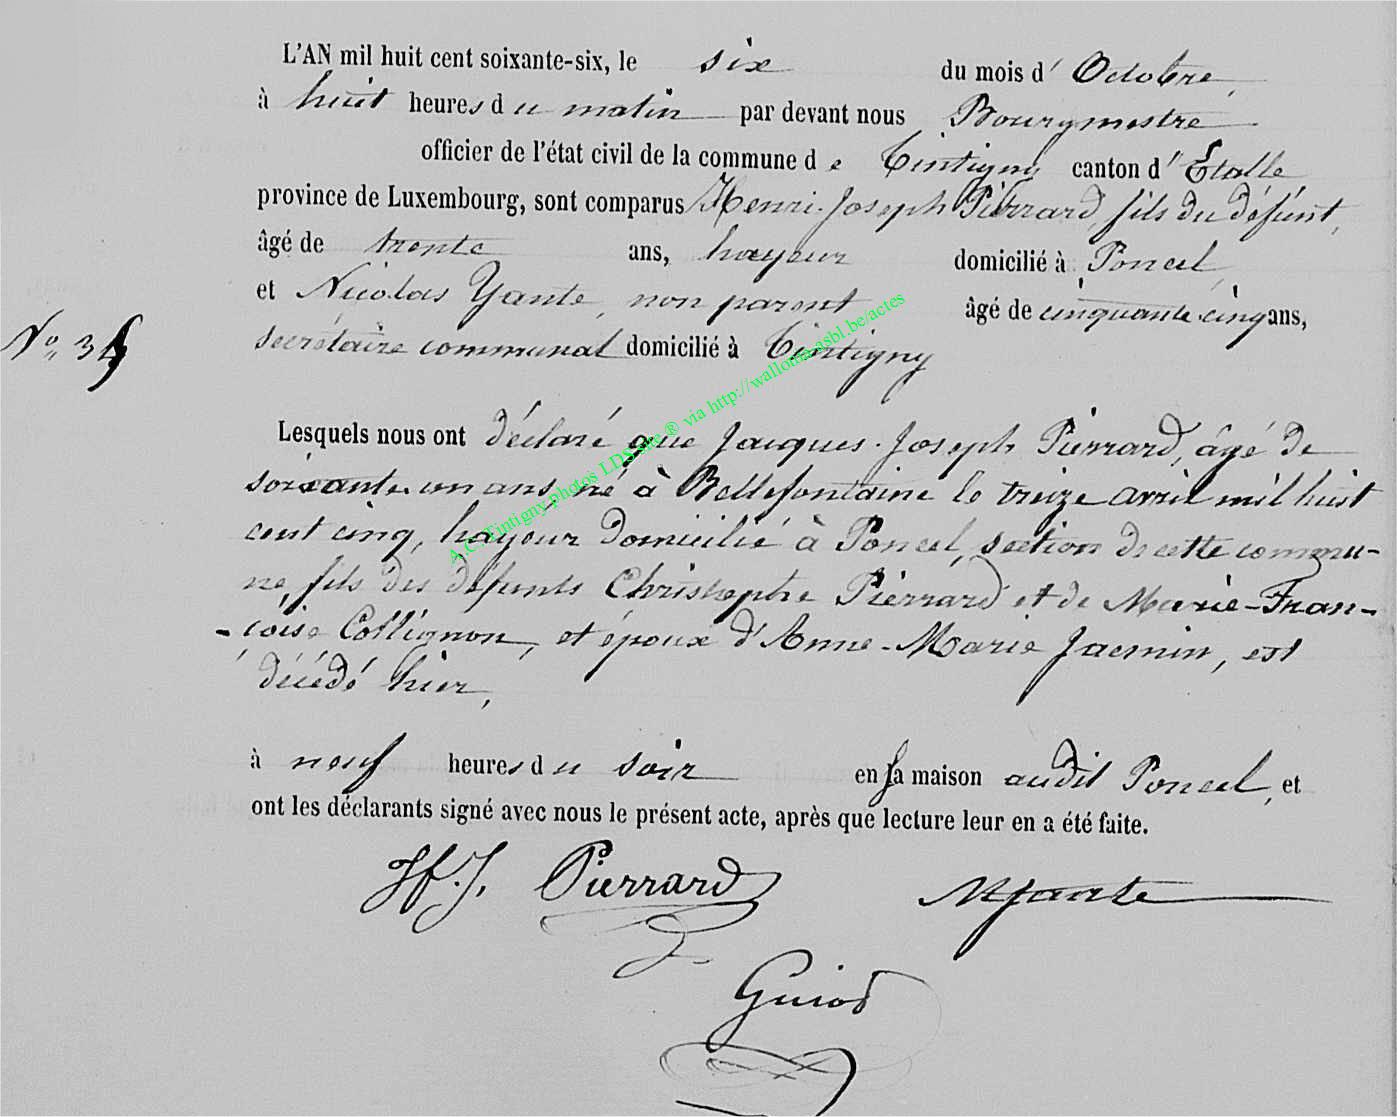 L'AN mil huit cent soixante-six, le six du mois d' Octobre,
à huit heures du matin par devant nous Bourgmestre
officier de l'état civil de la commune de Tintigny canton d' Etalle
province de Luxembourg, sont comparus Henri-Joseph Pierrard, fils du défunt,
âgé de trente ans, hayeur domicilié à Poncel,
et Nicolas Yante, non parent âgé de cinquante cinq ans,
N° 35
secrétaire communal domicilié à Tintigny
Lesquels nous ont déclaré que Jacques-Joseph Pierrard, âgé de
soixante un ans, né à Bellefontaine le treize avril mil huit
cent cinq, hayeur domicilié à Poncel, section de cette commu-
ne, fils des défunts Christophe Pierrard et de Marie-Fran-
-çoise Collignon, et époux d'Anne-Marie Jacmin, est
décédé hier,
à neuf heures du soir en sa maison audit Poncel, et
ont les déclarants signé avec nous le présent acte, après que lecture leur en a été faite.
H.J. Pierrard NYante
Guiot
A.C. Tintigny photos LDS site ® via http://wallonia-asbl.be/actes